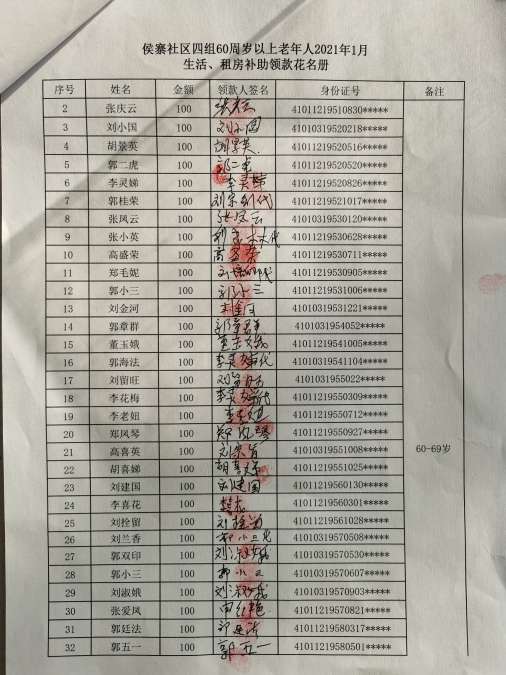 侯寨社区四组60周岁以上老年人2021年1月
生活、租房补助领款花名册
序号 姓名 金额 领款人签名 身份证号 备注
2 张庆云 100 41011219510830*****
3 刘小国 100 刘小国 41010319520218*****
4 胡景英 100 胡景英 41011219520516*****
5 郭二虎 100 郭二虎 41011219520520*****
6 李灵娣 100 李灵娣 41011219520826*****
7 郭桂荣 100 41011219521017*****
8 张凤云 100 张凤云 41010319530120*****
9 张小英 100 41011219530628*****
10 高盛荣 100 41011219530711*****
11 郑毛妮 100 41011219530905*****
12 郭小三 100 郭小三 41011219531006*****
13 刘金河 100 41010319531221*****
14 郭章群 100 4101031954052*****
15 董玉娥 100 董玉娥 41011219541005*****
16 郭海法 100 41010319541104*****
17 刘留旺 100 4101031955022*****
18 李花梅 100 41011219550309*****
19 李老妞 100 41011219550712*****
20 郑凤琴 100 郑凤琴 41011219550927*****
21 高喜英 100 41010319551008*****
22 胡喜娣 100 胡喜娣 41011219551025*****
23 刘建国 100 刘建国 41011219560130*****
24 李喜花 100 41011219560301*****
25 刘拴留 100 刘拴留 41011219561028*****
26 刘兰香 100 41010319570508*****
27 郭双印 100 41010319570530*****
28 郭小三 100 郭小三 41010319570607*****
29 刘淑娥 100 刘淑娥 41010319570903*****
30 张爱凤 100 41011219570821*****
31 郭廷法 100 41011219580317*****
32 郭五一 100 郭五一 41011219580501*****
60-69岁